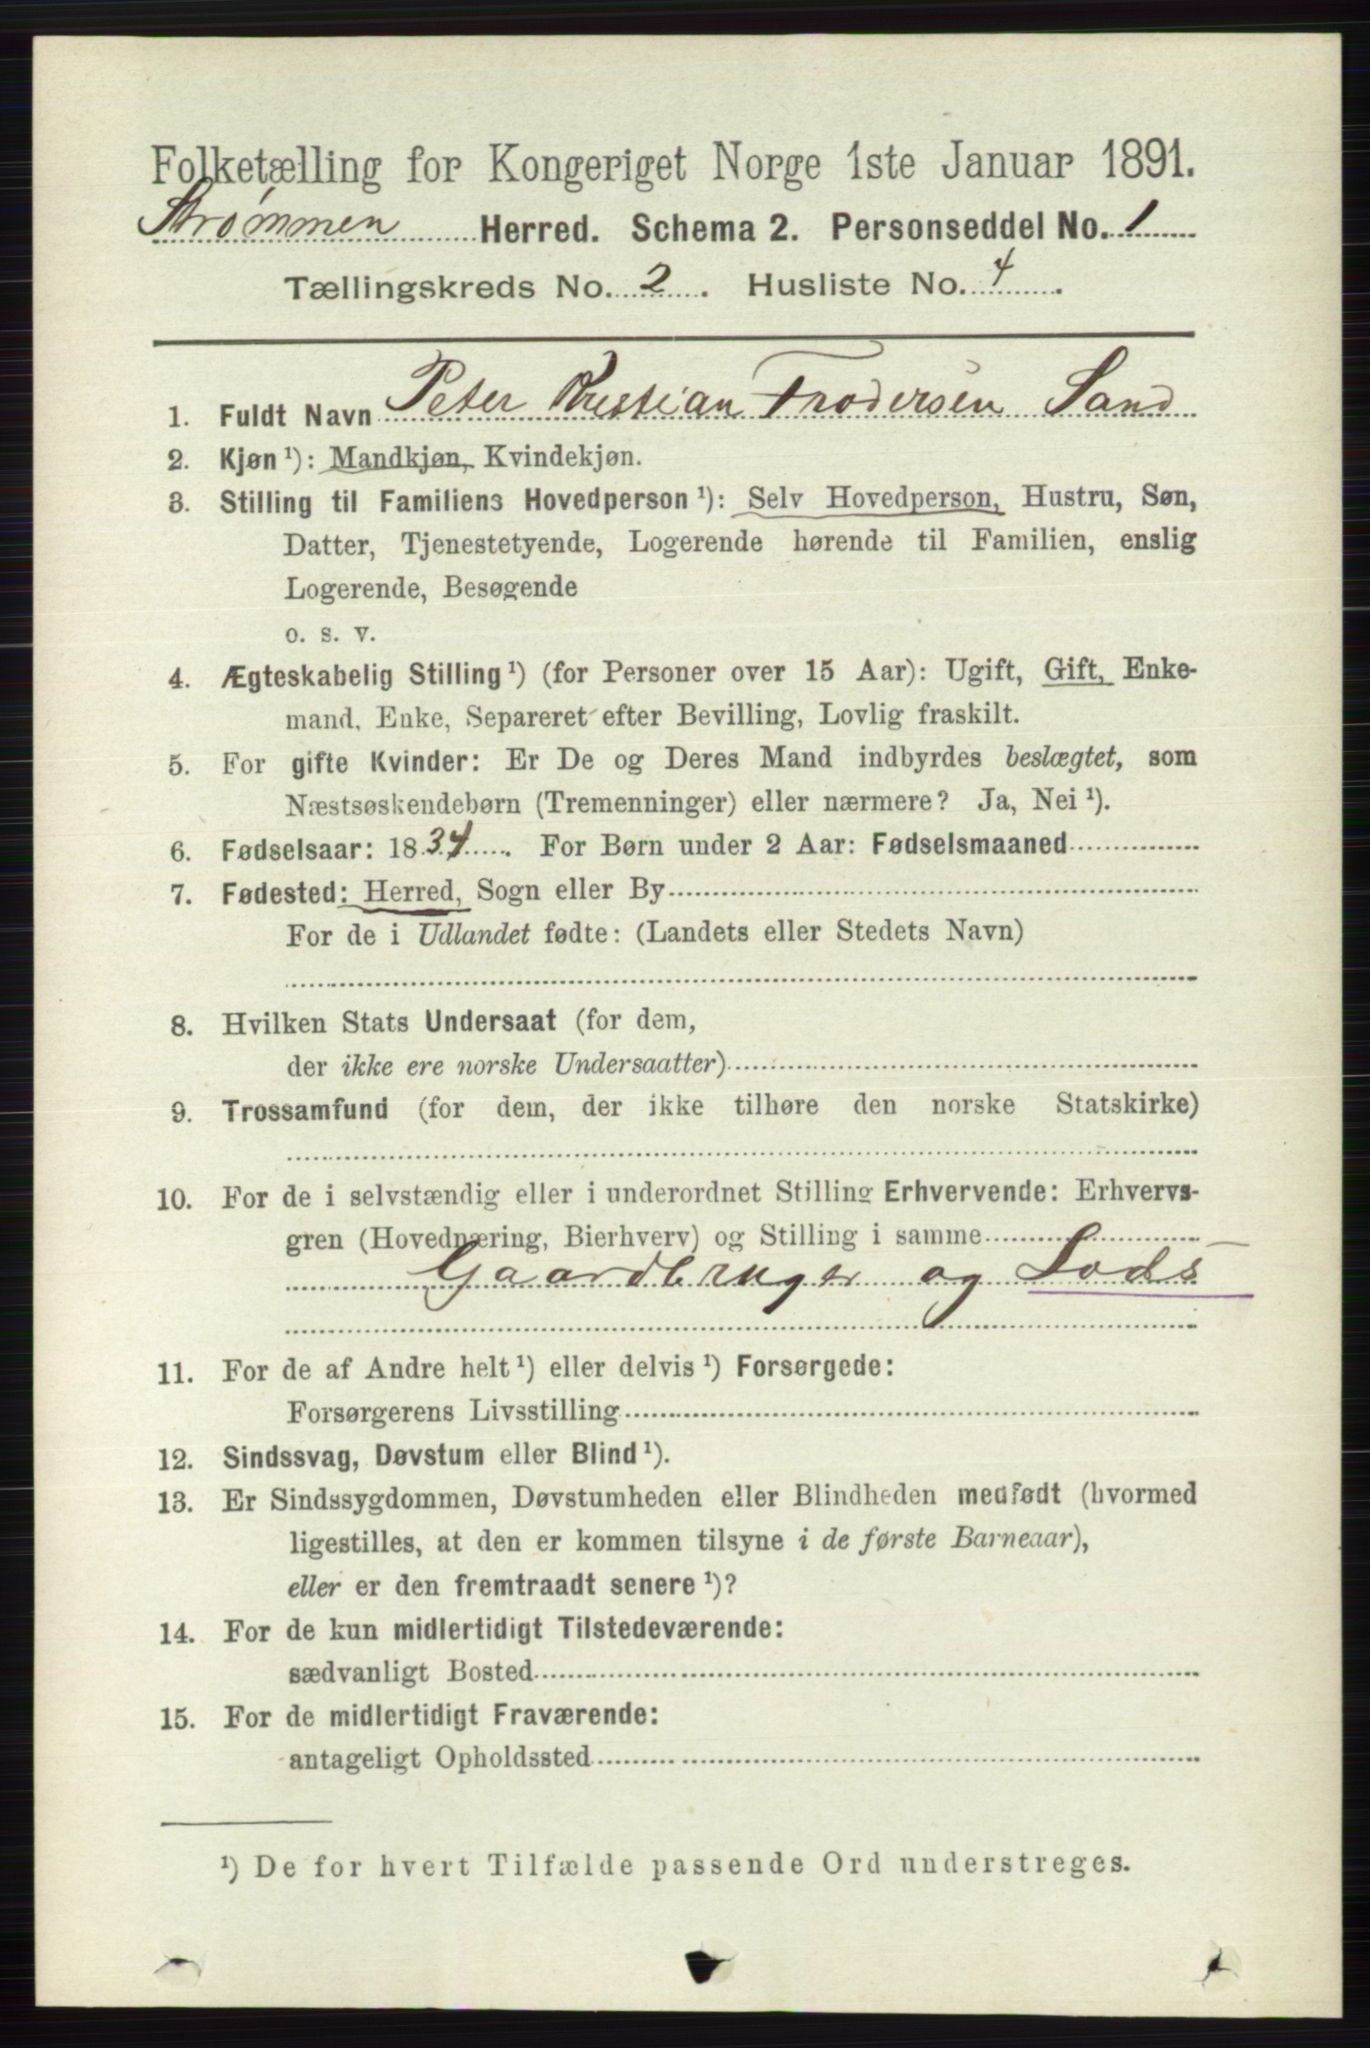 Folketælling for Kongeriget Norge 1ste Januar 1891.
Strømmen Herred. Schema 2. Personseddel No. 1
Tællingskreds No. 2. Husliste No. 4.
1. Fuldt Navn Peter Kristian Frodersen Sand
2. Kjøn ¹): Mandkjøn, Kvindekjøn.
3. Stilling til Familiens Hovedperson ¹): Selv Hovedperson, Hustru, Søn,
Datter, Tjenestetyende, Logerende hørende til Familien, enslig
Logerende, Besøgende
o. s. v.
4. Ægteskabelig Stilling ¹) (for Personer over 15 Aar): Ugift, Gift, Enke-
mand, Enke, Separeret efter Bevilling, Lovlig fraskilt.
5. For gifte Kvinder: Er De og Deres Mand indbyrdes beslægtet, som
Næstsøskendebørn (Tremenninger) eller nærmere? Ja, Nei ¹).
6. Fødselsaar: 1834. For Børn under 2 Aar: Fødselsmaaned
7. Fødested: Herred, Sogn eller By
For de i Udlandet fødte: (Landets eller Stedets Navn)
8. Hvilken Stats Undersaat (for dem,
der ikke ere norske Undersaatter)
9. Trossamfund (for dem, der ikke tilhøre den norske Statskirke)
10. For de i selvstændig eller i underordnet Stilling Erhvervende: Erhvervs-
gren (Hovednæring, Bierhverv) og Stilling i samme
Gaardbruger og Lods
11. For de af Andre helt ¹) eller delvis ¹) Forsørgede:
Forsørgerens Livsstilling
12. Sindssvag, Døvstum eller Blind ¹).
13. Er Sindssygdommen, Døvstumheden eller Blindheden medfødt (hvormed
ligestilles, at den er kommen tilsyne i de første Barneaar),
eller er den fremtraadt senere ¹)?
14. For de kun midlertidigt Tilstedeværende:
sædvanligt Bosted
15. For de midlertidigt Fraværende:
antageligt Opholdssted
¹) De for hvert Tilfælde passende Ord understreges.